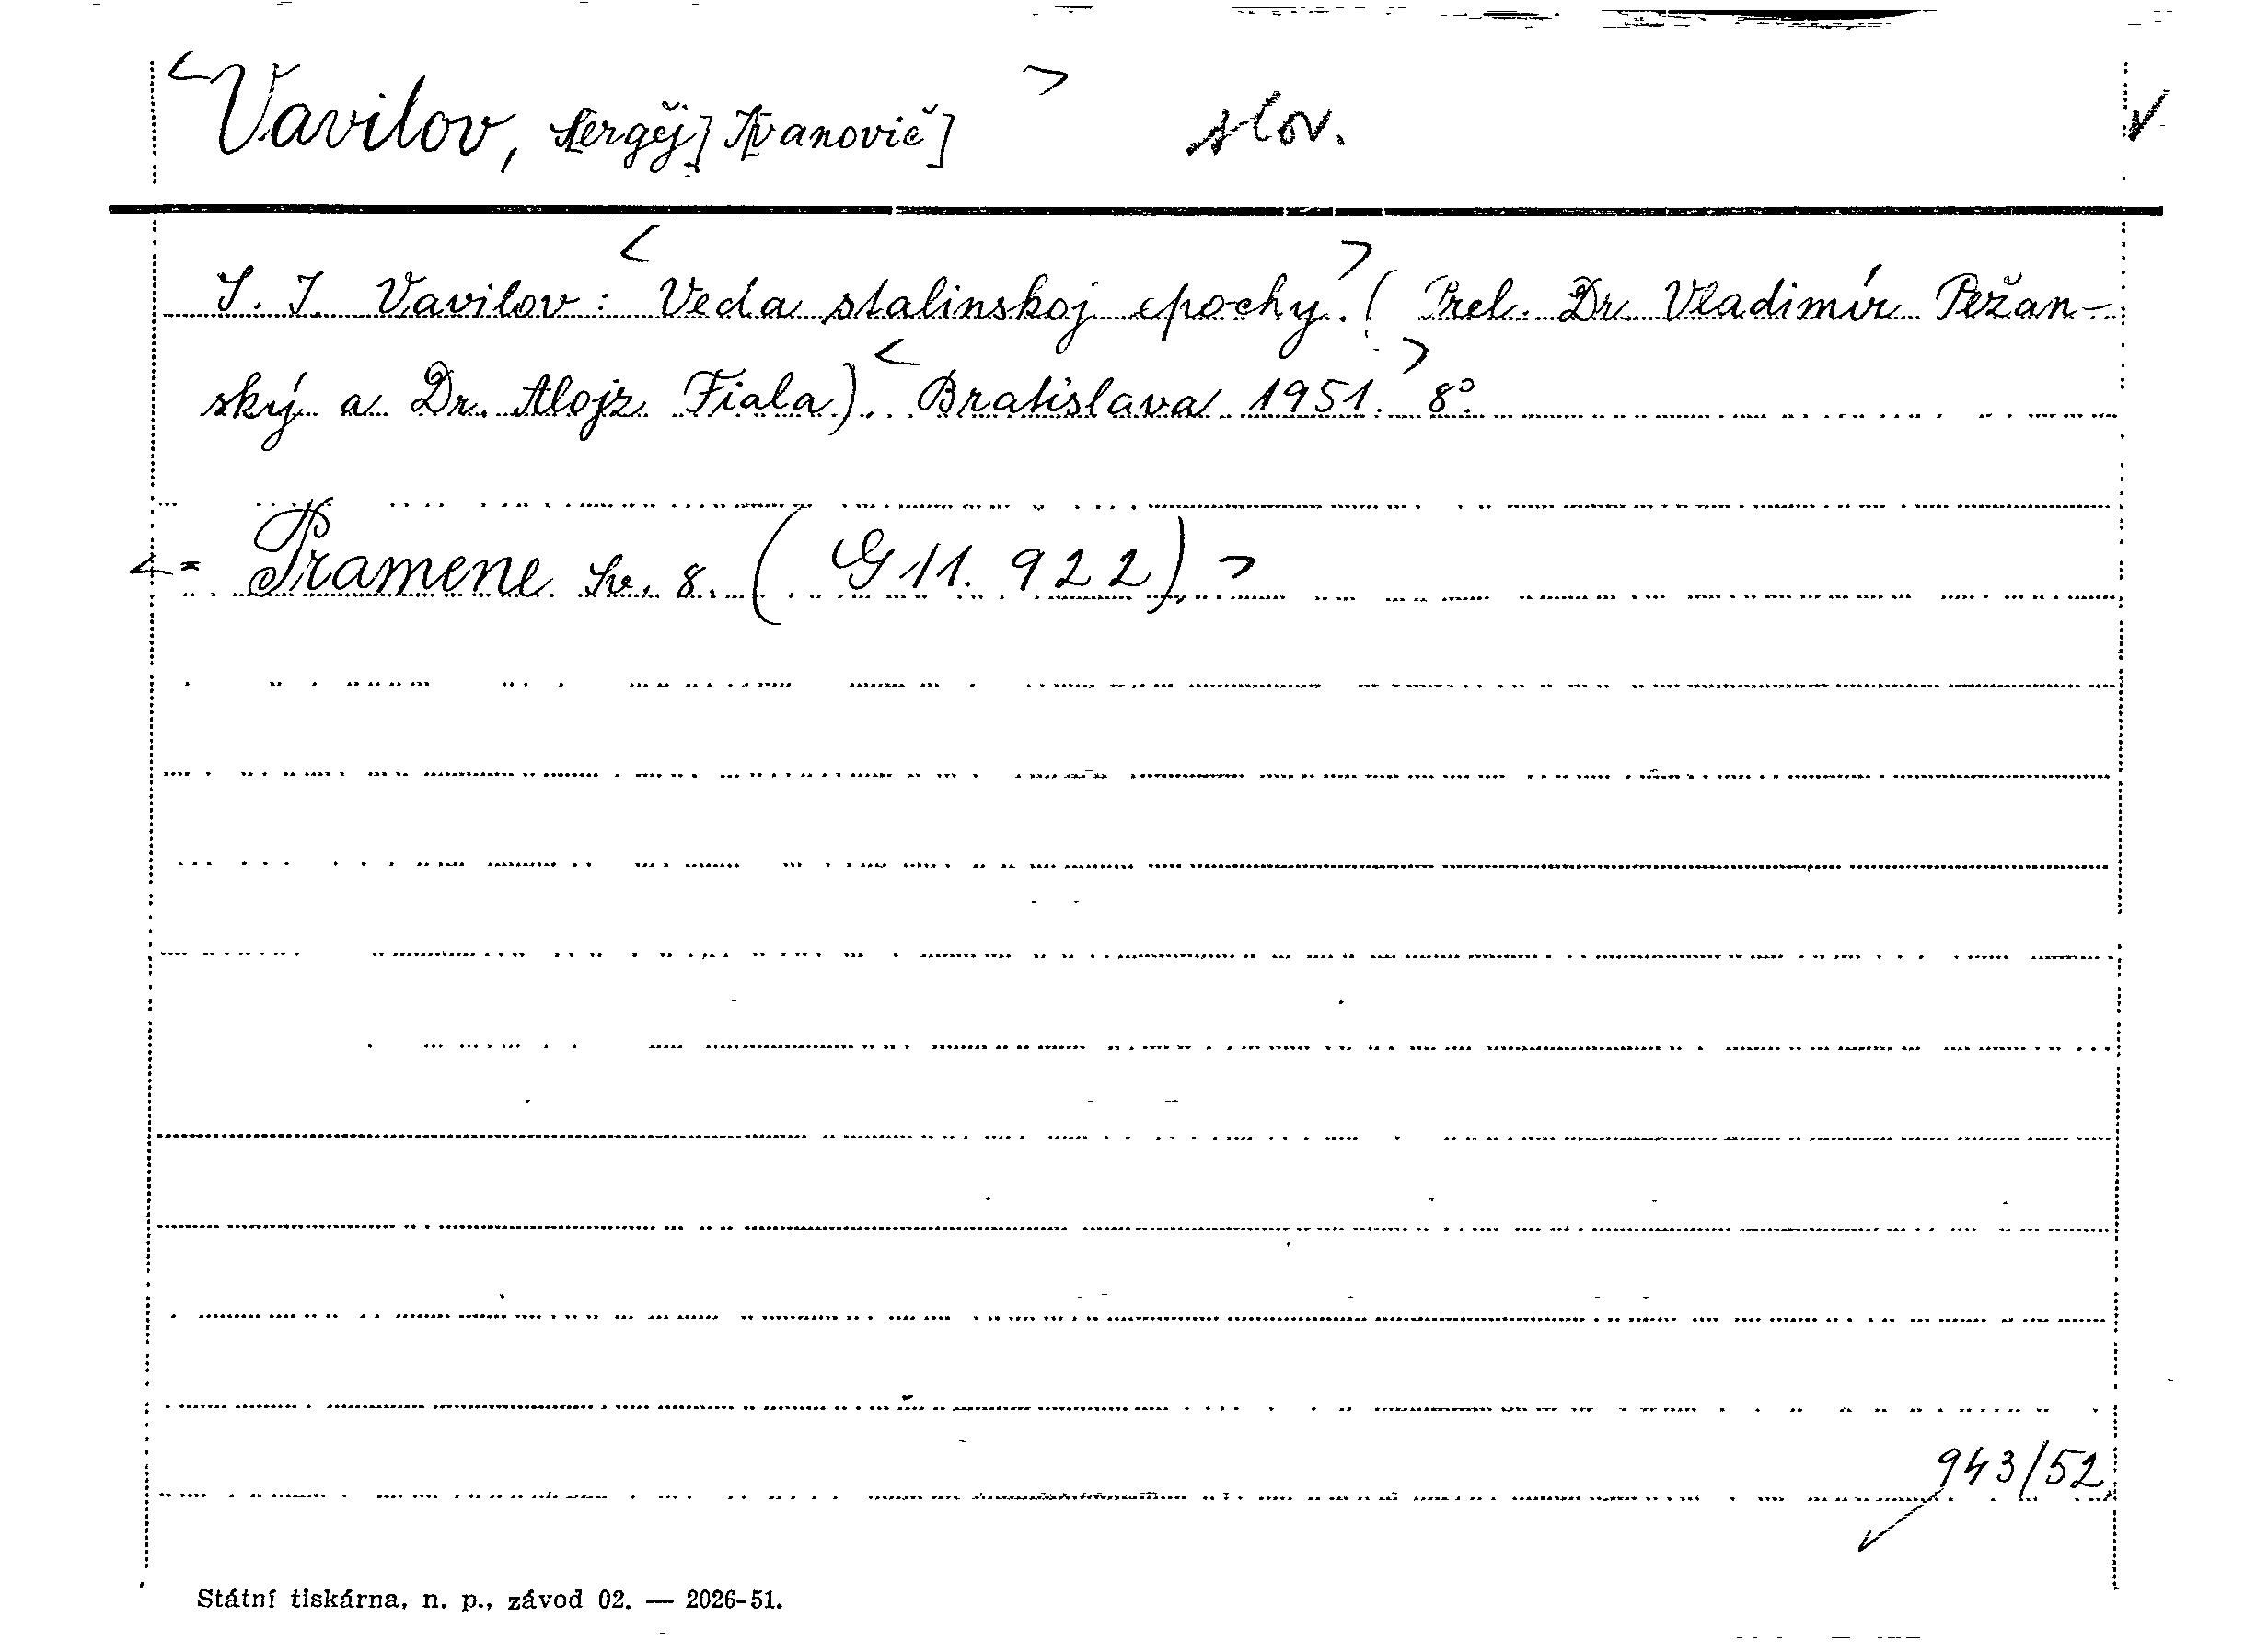 <Vavilov, S[ergěj] I[vanovič]> slov. v
S. I. Vavilov: <Veda stalinskoj epochy.> (Prel. Dr. Vladimír Pežan-
ský a Dr. Alojz Fiala). <Bratislava 1951.> 8°.
<= Pramene Sv. 8. (G 11.922).>
943/52.
Státní tiskárna, n. p., závod 02. — 2026-51.